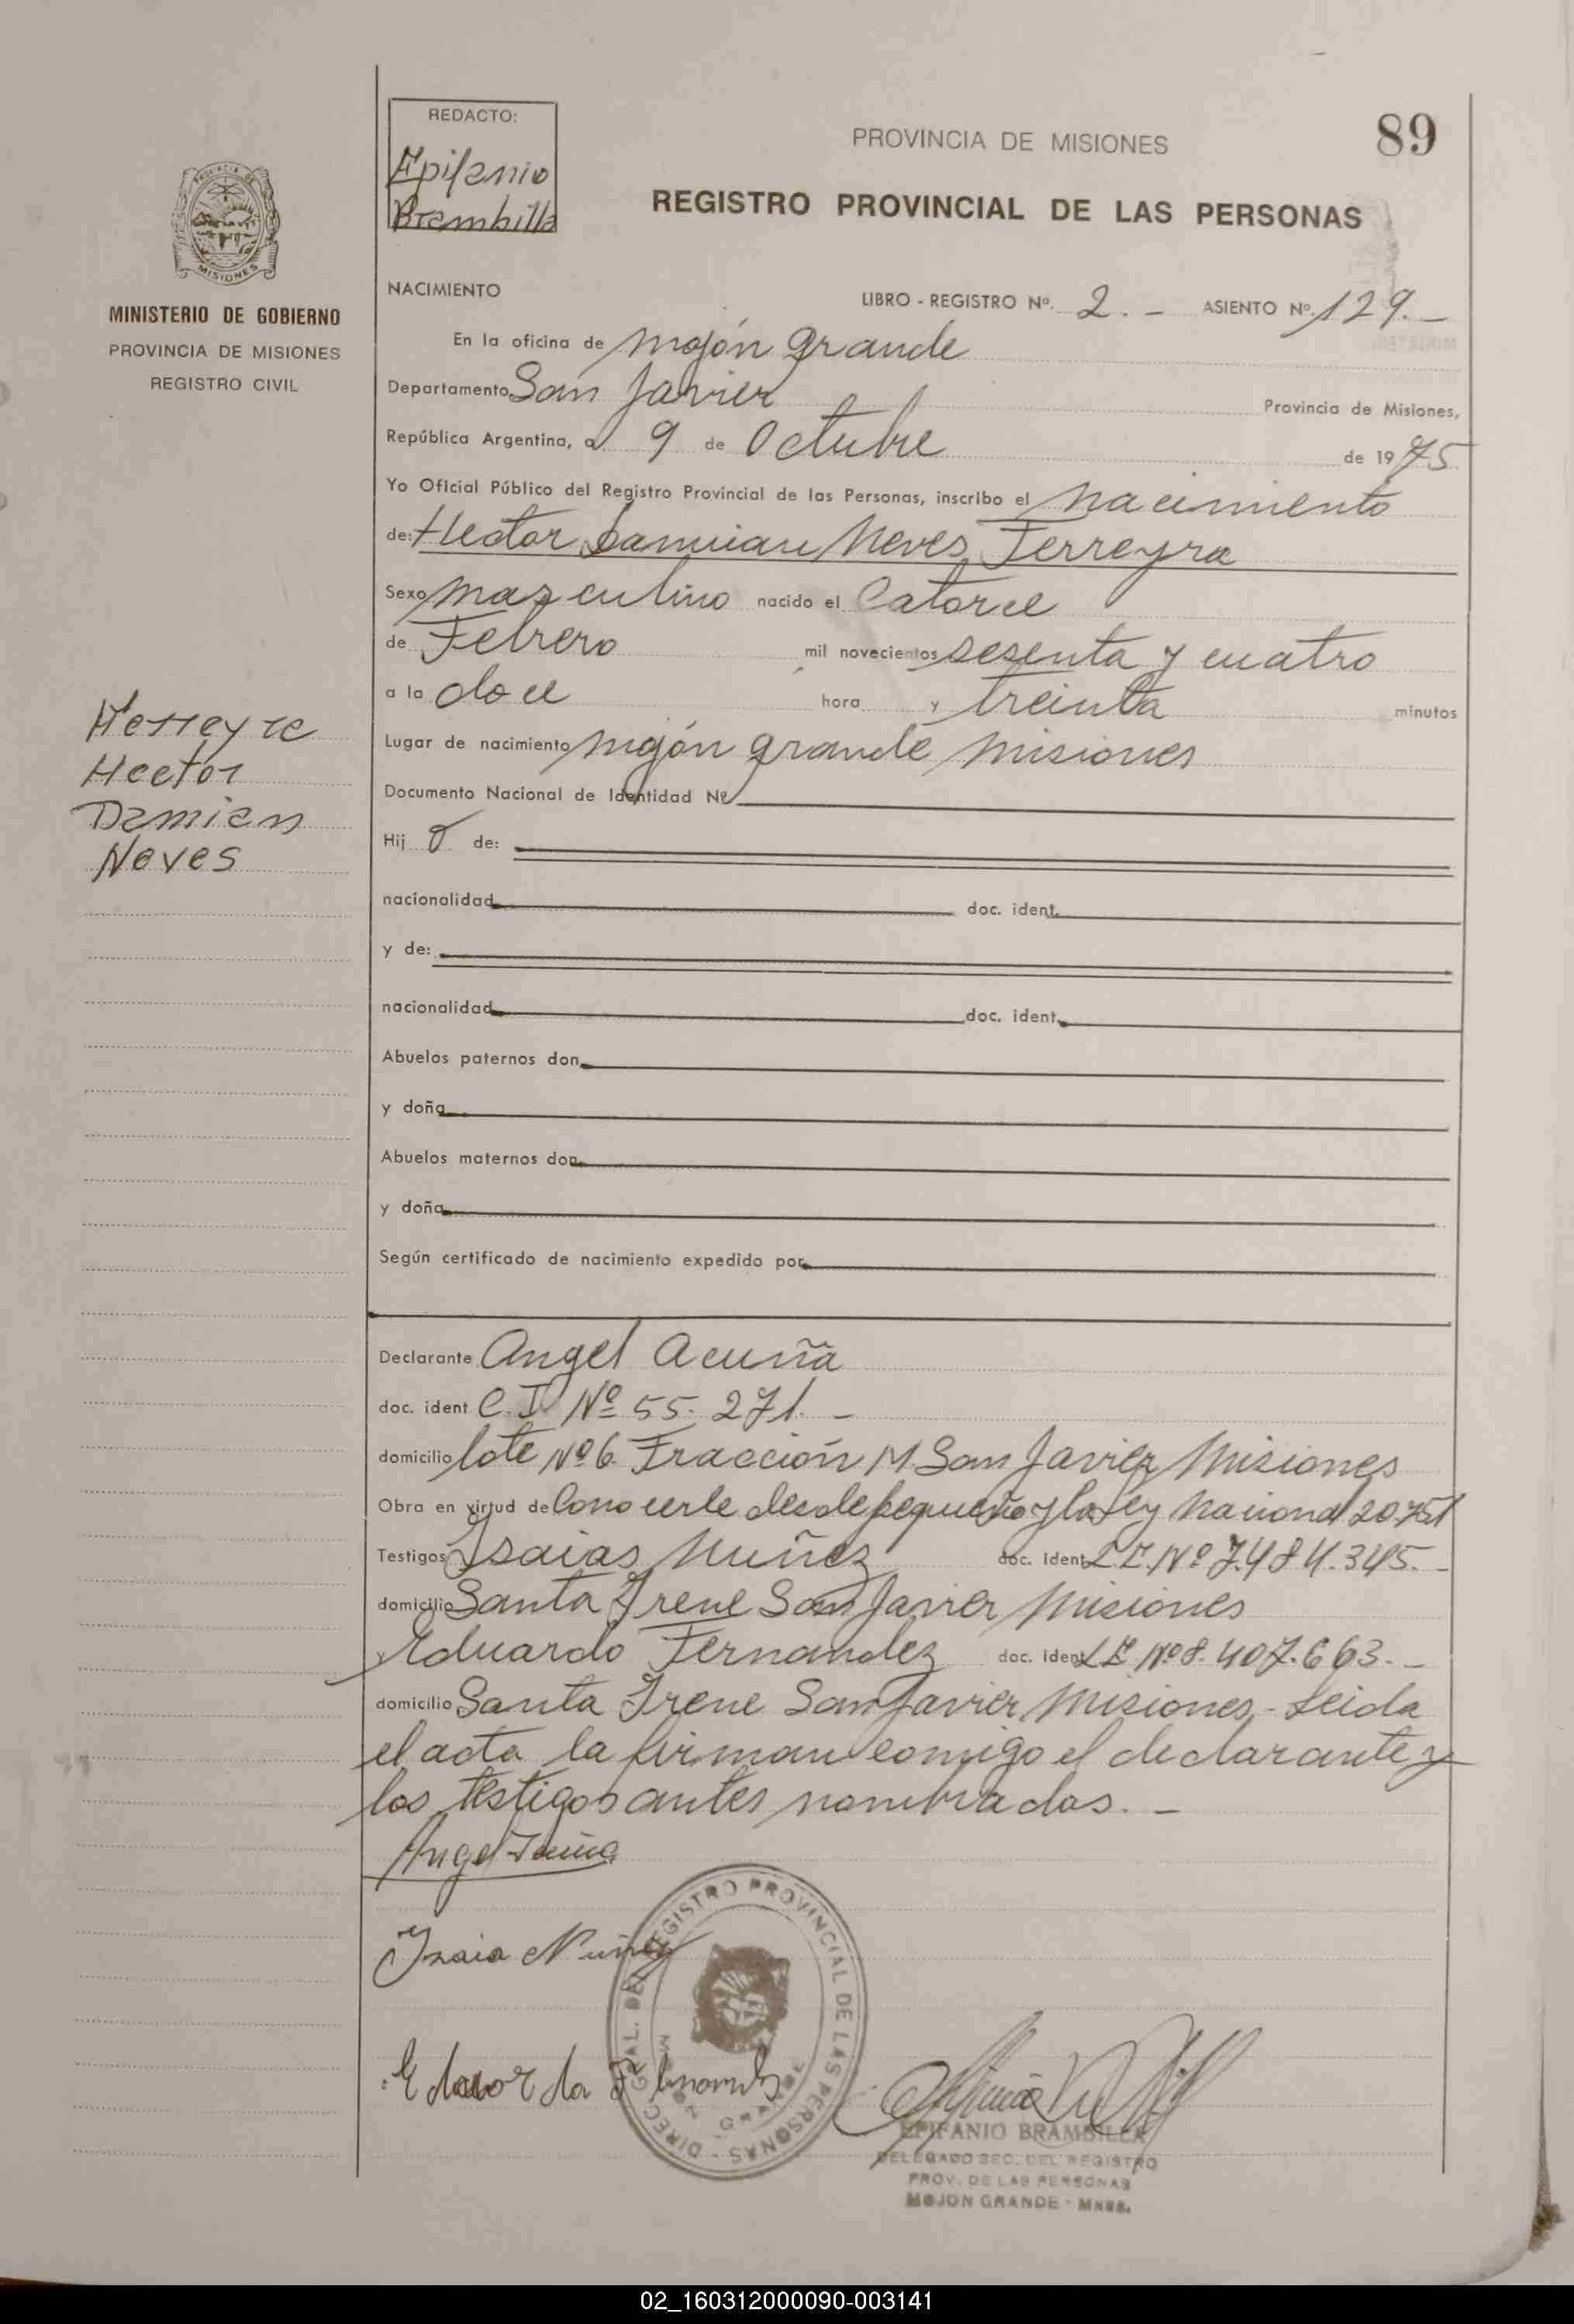 REDACTO:
Epifanio
Brambilla
PROVINCIA DE MISIONES
89
REGISTRO PROVINCIAL DE LAS PERSONAS
PROVINCIA DE
MISIONES
MINISTERIO DE GOBIERNO
PROVINCIA DE MISIONES
REGISTRO CIVIL
NACIMIENTO
LIBRO - REGISTRO Nº. 2. - ASIENTO Nº. 129. -
En la oficina de Mojón Grande
Departamento San Javier Provincia de Misiones,
República Argentina, a 9 de Octubre de 1975
Yo Oficial Público del Registro Provincial de las Personas, inscribo el Nacimiento
de: Hector Damian Neves Ferreyra
Sexo Masculino nacido el Catorce
de Febrero mil novecientos sesenta y cuatro
a la doce hora y treinta minutos
Lugar de nacimiento Mojón Grande Misiones
Ferreyra
Hector
Damian
Neves
Documento Nacional de Identidad Nº
Hij o de:
nacionalidad doc. ident.
y de:
nacionalidad doc. ident.
Abuelos paternos don
y doña
Abuelos maternos don
y doña
Según certificado de nacimiento expedido por
Declarante Angel Acuña
doc. ident C.I. Nº 55.271. -
domicilio lote Nº 6. Fracción M. San Javier Misiones
Obra en virtud de Conocerle desde pequeño y la Ley Nacional 20.751
Testigos Isaias Nuñez doc. Ident L.E. Nº 7.484.345. -
domicilio Santa Irene San Javier Misiones
Eduardo Fernandez doc. Ident L.E. Nº 8.407.663. -
domicilio Santa Irene San Javier Misiones. - Leida
el acta la firman comigo el declarante y
los testigos antes nombrados. -
Angel Acuña
Isaia Nuñez
DIREC. GRAL. DEL REGISTRO PROVINCIAL DE LAS PERSONAS -
MOJON GRANDE
EPIFANIO BRAMBILLA
DELEGADO SEC. DEL REGISTRO
PROV. DE LAS PERSONAS
MOJON GRANDE - MNES.
02_160312000090-003141